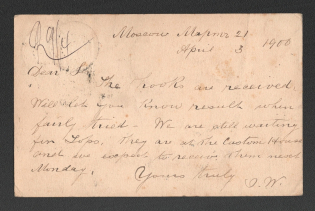 Moscow
April 3 1900
Dear Sir
The books are received.
Will let you know result when
fairly tried - We are still waiting
for Tops. They are at the Custom House
and we expect to receive them next
Monday.
Yours truly